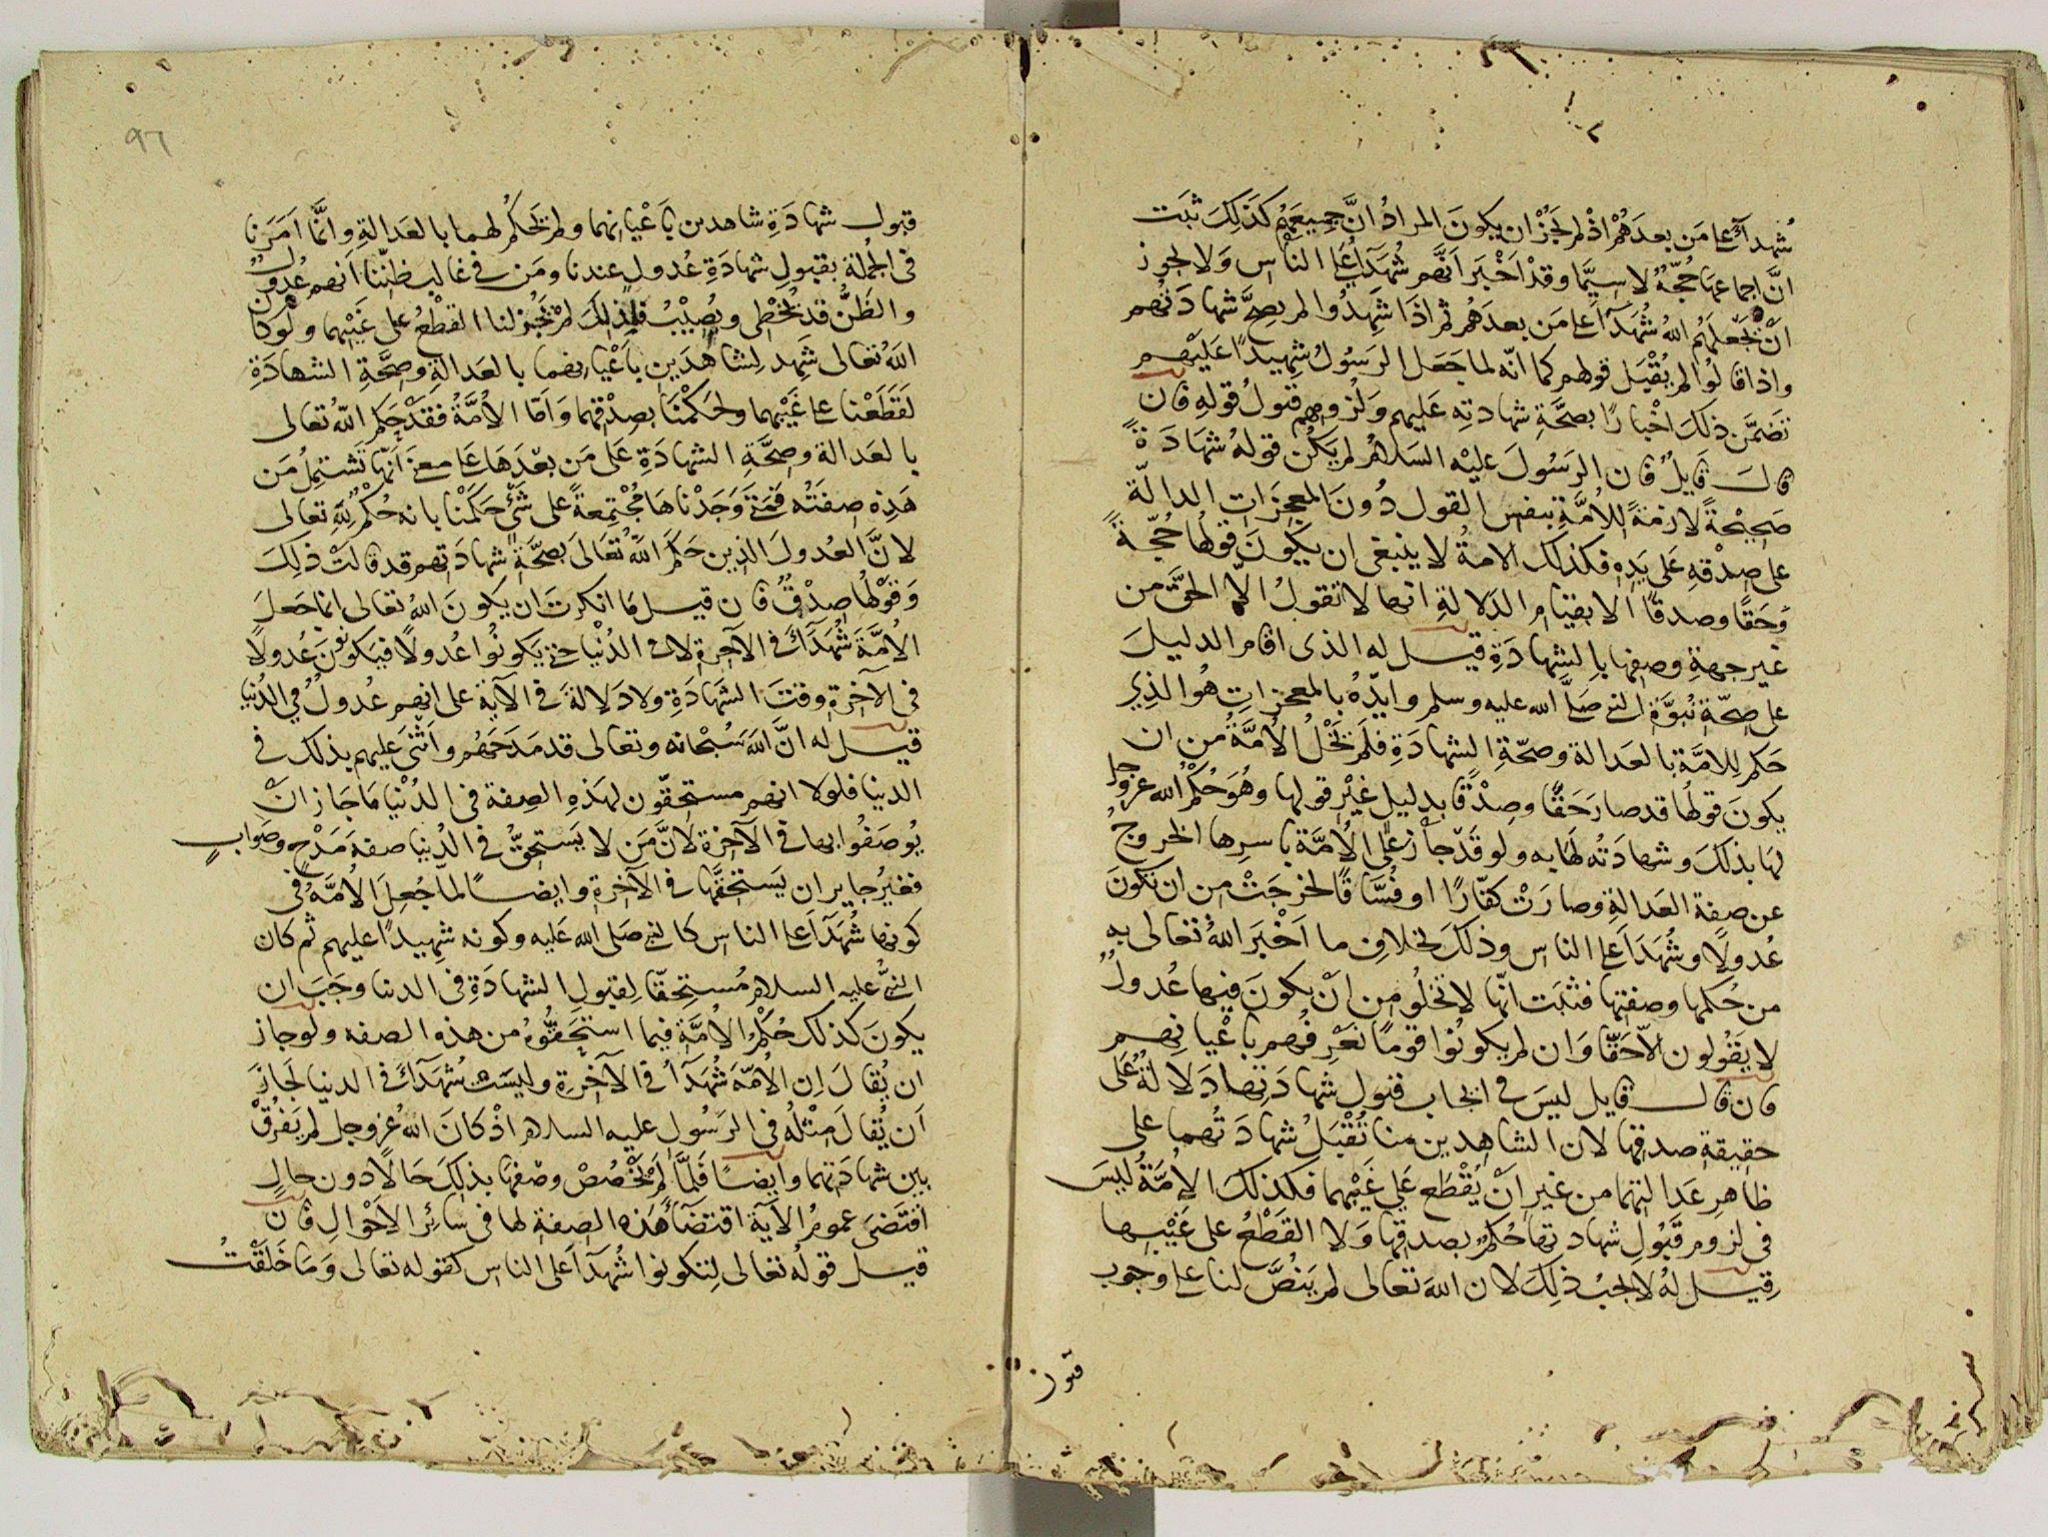 شُهداءَ على مَن بعدَهُمْ اذْ لم يَجُزْ ان يكونَ المرادُ انَّ جميعَهُم كذَلِكَ ثبَت
انَّ اجماعَها حُجَّةٌ لا سيَّما وقدْ اَخْبَر اَنَّهم شُهَدَآءُ على الناس وَلا يجوز
انْ يَجْعلَهُم اللهُ شُهَدَآءَ على مَن بعدَهُم ثم اذَا شَهِدُوا لم يصِحَّ شهادَتُهم
واذا قالُوا لم يُقْبَل قولهم كما انّه لما جَعَل الرسُولُ شهِيدًا عَلَيْهم
تضمَّن ذلكَ اخْبارًا بصحَّةِ شهادتِه عَليهم وَلزُومِهم قبولُ قولِهِ فان
قالَ قَايلٌ فان الرسُولَ عليْه السلامُ لم يكُنْ قولهُ شهَادَةً
صَحِيْحةً لازمَةً للاُمَّةِ بنفسِ القول دُونَ المعجِزَاتِ الدالّة
على صِدْقهِ عَلى يَدِه فكذلكَ الامةُ لا ينبغى ان يكونَ قولُها حُجّةً
وَحَقًا وصدقًا الا بقيَام الدَلالةِ انها لا تقولُ الّا الحقَّ من
غير جهةِ وصفِها بالشهادَةِ قيل له الذى اقام الدليلَ
على صِحّةِ نُبوَّة النبى صَلَّى الله عليه وسلم وايّدَهُ بالمعجزاتِ هُوَ الذِي
حَكم للامَّة بالعَدالة وصحّةِ الشهادَةِ فلَم تَخْلُ الاُمَّةُ مِن ان
يكونَ قولُها قد صارَ حَقًّا وصِدْقًا بدليلٍ غيْرِ قولها وهُوَ حُكْمُ الله عز وجل
لهَا بذلكَ وشهادَتُه لَها به ولو قَدْ جازَ على الاُمَّة باسرِها الخروجُ
عن صفة العَدالةِ وصارَتْ كفّارًا او فُسَّاقًا لخرجَتْ من ان تكونَ
عُدولًا وشُهَدَآءَ على الناس وذلكَ بخلافِ ما اَخْبَرَ اللهُ تعالى به
من حُكمِها وصفتِها فثبَت انّها لا تخلُو مِن انْ يكونَ فيها عُدولٌ
لا يقُولون الّا حَقًّا وَان لم يكونُوا قومًا نَعْرِفُهم باعْيانِهم
فان قالَ قايل ليسَ فى ايجاب قبول شهادَتِها دَلالةٌ عَلى
حقيقةِ صدقِها لان الشاهدين منا تُقْبَلُ شهادَتُهما على
ظاهر عَدالتهما من غير اَنْ يُقْطَع عَلى غَيْبِهما فكذلكَ الاُمَّةُ ليسَ
فى لزومِ قَبُولِ شهادتِها حُكمٌ بصدقِها وَلا القَطْعُ على غَيْبها
قِيل لهُ لا يجبُ ذلكَ لان اللهَ تعالى لم يَنُصَّ لنا على وجوب
قبول
٩٦
قبول شهادَةِ شاهدين باَعْيانِهما ولم يَحْكُم لهما بالعَدالةِ وانَّما اَمَرَنا
فى الجُملة بقبولِ شهادَةِ عُدولٍ عندنا ومَن فى غالب ظنِّنا اَنهم عُدولٌ
والظَنُّ قد يُخطِى ويُصيْبُ فلذلكَ لم يَجُز لنا القَطْعُ على غَيْبِهما ولوكان
اللهُ تعالى شَهِد لِشاهدَين باَعْيانِهما بالعَدالةِ وصِحَّةِ الشهادَةِ
لقَطَعْنا على غَيْبِهما ولحَكمْنَا بصِدْقِهما وَاَمّا الاُمَّةُ فقَدْ حَكم اللهُ تعالى
بالعَدالة وصِحَّةِ الشهادَةِ عَلَى مَن بعْدَهَا على معنى اَنّها تَشتمِلُ مَن
هَذِه صِفَتُه فمَتى وَجَدْناهَا مُجْتمِعةً على شَىْءٍ حَكَمْنا بانه حُكْمٌ للّهِ تعالى
لانَّ العُدولَ الذين حَكمَ اللهُ تعَالَى بصحَّةِ شهادَتِهم قد قالَتْ ذلِكَ
وَقوْلُها صِدْقٌ فان قيل مَا انكرتَ ان يكونَ اللهُ تعالى انما جَعلَ
الاُمَّةَ شُهَدَآءَ فى الآخِرَةِ لا فى الدُنْيا حتى يَكونُوا عُدولًا فيَكونُونَ عُدولًا
فى الآخرةِ وقتَ الشَهَادَةِ ولا دَلالةَ فى الآيةِ على انهم عُدولٌ فى الدُنيا
قيل له انَّ اللهَ سُبْحانه وتعالى قد مَدَحهُم واَثْنَى عَليهم بذلكَ فى
الدنيا فلولا انهم مستحِقُّون لهذِهِ الصِفة فى الدُنْيا مَا جَاز انْ
يُوصَفُوا بها فى الآخرة لانَّ مَن لا يَستحِقُّ فى الدُنيا صفةَ مَدْحٍ وصَوابٍ
فغيرُ جايز ان يَستحقَّها فى الآخرةِ وايضًا لمّا جُعِلَ الاُمَّةُ فى
كونِها شُهَدَآءَ على الناس كالنبى صَلى الله عَليه وكونه شهِيدًا عليهم ثم كان
النبىُّ عليه السلام مُستحِقًّا لِقبولِ الشهادَةِ فى الدنيا وجَبَ ان
يكونَ كذلكَ حُكْمُ الاُمَّةِ فيما استَحَقُّوهُ من هذه الصفه ولو جاز
ان يُقالَ اِن الاُمّةَ شُهَدَآءُ فى الآخرةِ وليسَتْ شُهَدَآءَ فى الدنيا لَجازَ
اَن يُقالَ مِثْلُه فى الرَسُولِ عليه السلام اذْ كانَ اللهُ عز وجل لم يَفْرُقْ
بين شهادَتِهما وايضًا فَلمَّا لم يَخْصُصْ وصْفَها بذلكَ حَالًا دون حالٍ
اقتَضَى عمومُ الآيةِ اقتضَآءَ هَذه الصفة لها فى سَائِرِ الاَحْوالِ فان
قيل قولُه تعالى لِتكونوا شُهَدَآءَ على الناس كقوله تعالى وَمَا خَلَقْتُ